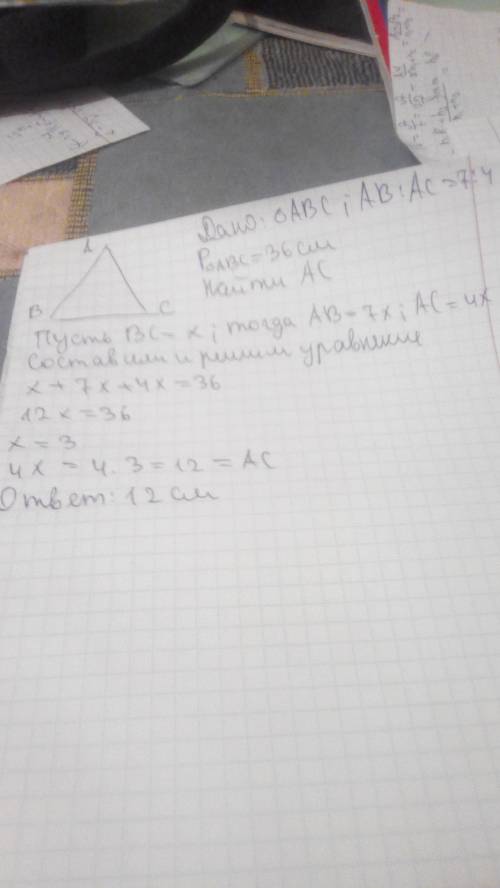 Дано: △ABC; AB:AC=7:4
P△ABC=36 см
Найти AC
A
B
C
Пусть BC=x; тогда AB=7x; AC=4x
Составим и решим уравнение
x+7x+4x=36
12x=36
x=3
4x=4·3=12=AC
Ответ: 12 см